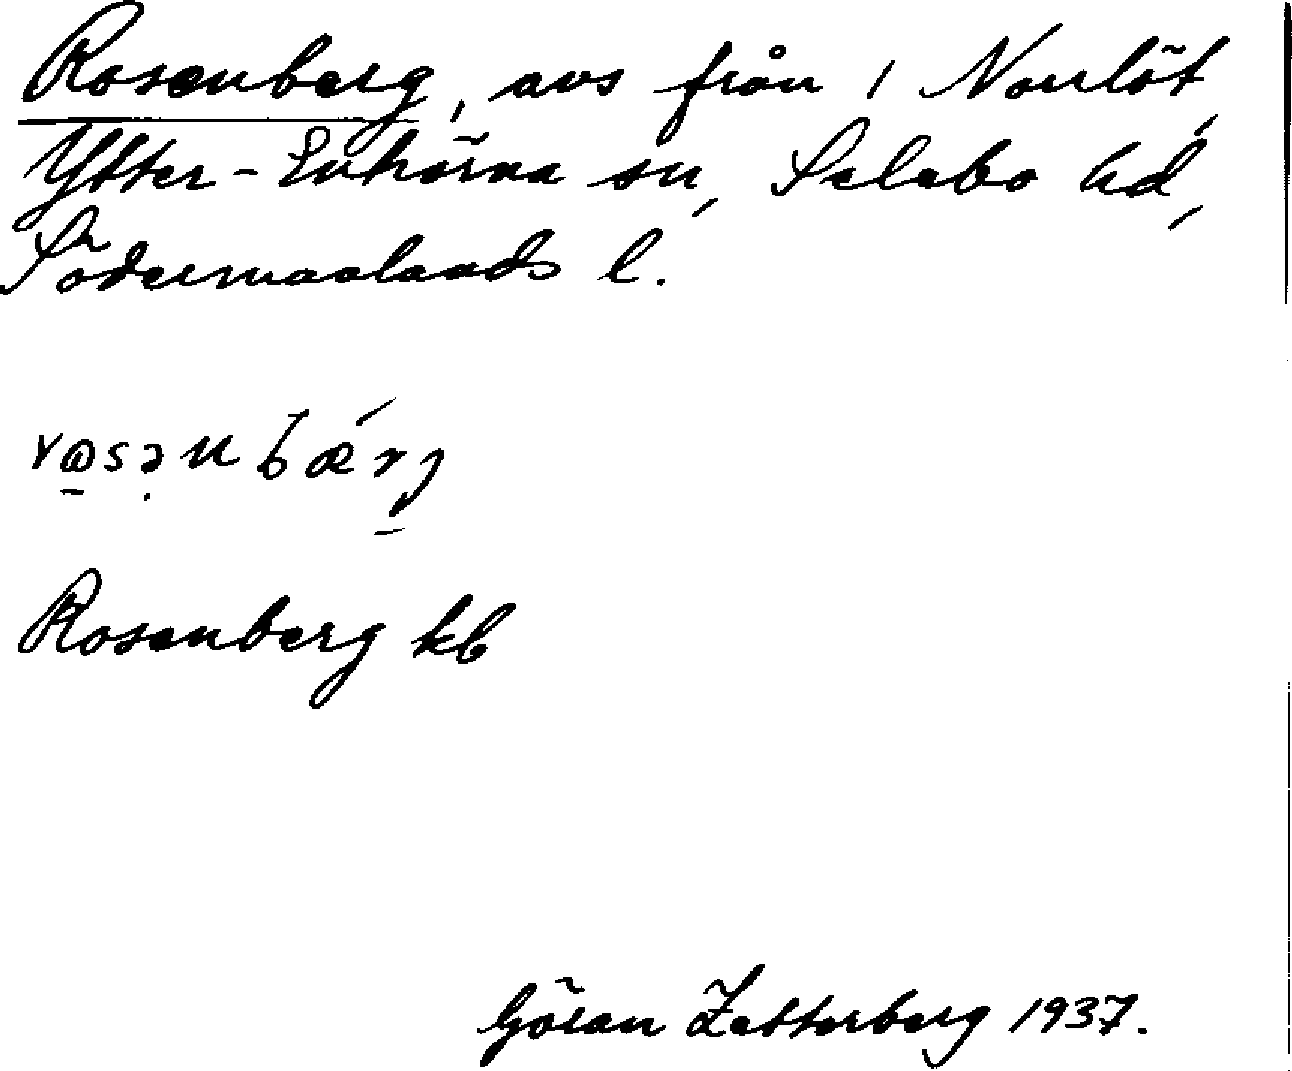 Rosenberg, avs från 1 Norrlöt,
Ytter-Enhörna sn, Selebo hd,
Södermanlands l.
rɷsənbǽrj
Rosenberg kb
Göran Zetterberg 1937.